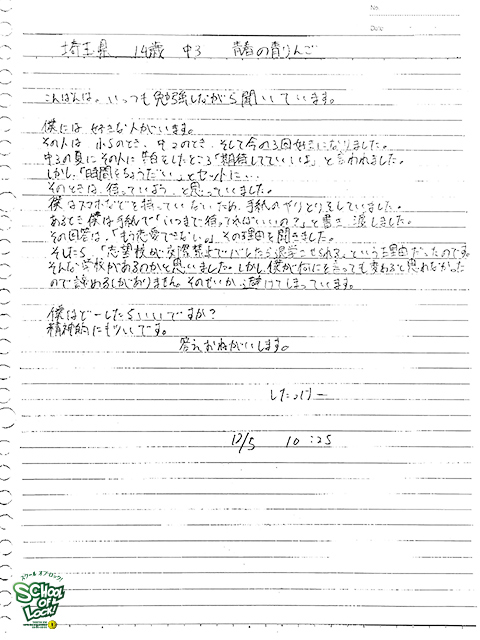 No.
Date
埼玉県 14歳 中3 青春の青りんご
こんばんは。いっつも勉強しながら聞いています。
僕には好きな人がいます。
その人は小5のとき、中2のとき、そして今の3回好きになりました。
中3の夏にその人に告白をしたところ「期待してていいよ」と言われました。
しかし、「時間をちょうだい」とセットに…
そのときは、待っていよう、と思っていました。
僕はスマホなどを持っていないため、手紙のやりとりをしていました。
あるとき僕は手紙で「いつまで待ってればいいの?」と書き渡しました。
その回答は、「もう恋愛できない。」その理由を聞きました。
そしたら「志望校が交際禁止でバレたら退学させられる」という理由だったのです。
そんな学校があるのかと思いました。しかし僕が何を言っても変わると思れなかった
ので諦めるしかありません。そのせいか避けてしまっています。
僕はどーしたらいいですか?
精神的にもりいです。
答えおねがいします。
したっけー
12/5 10:25
スクール オブ ロック!
SCHOOL OF LOCK!